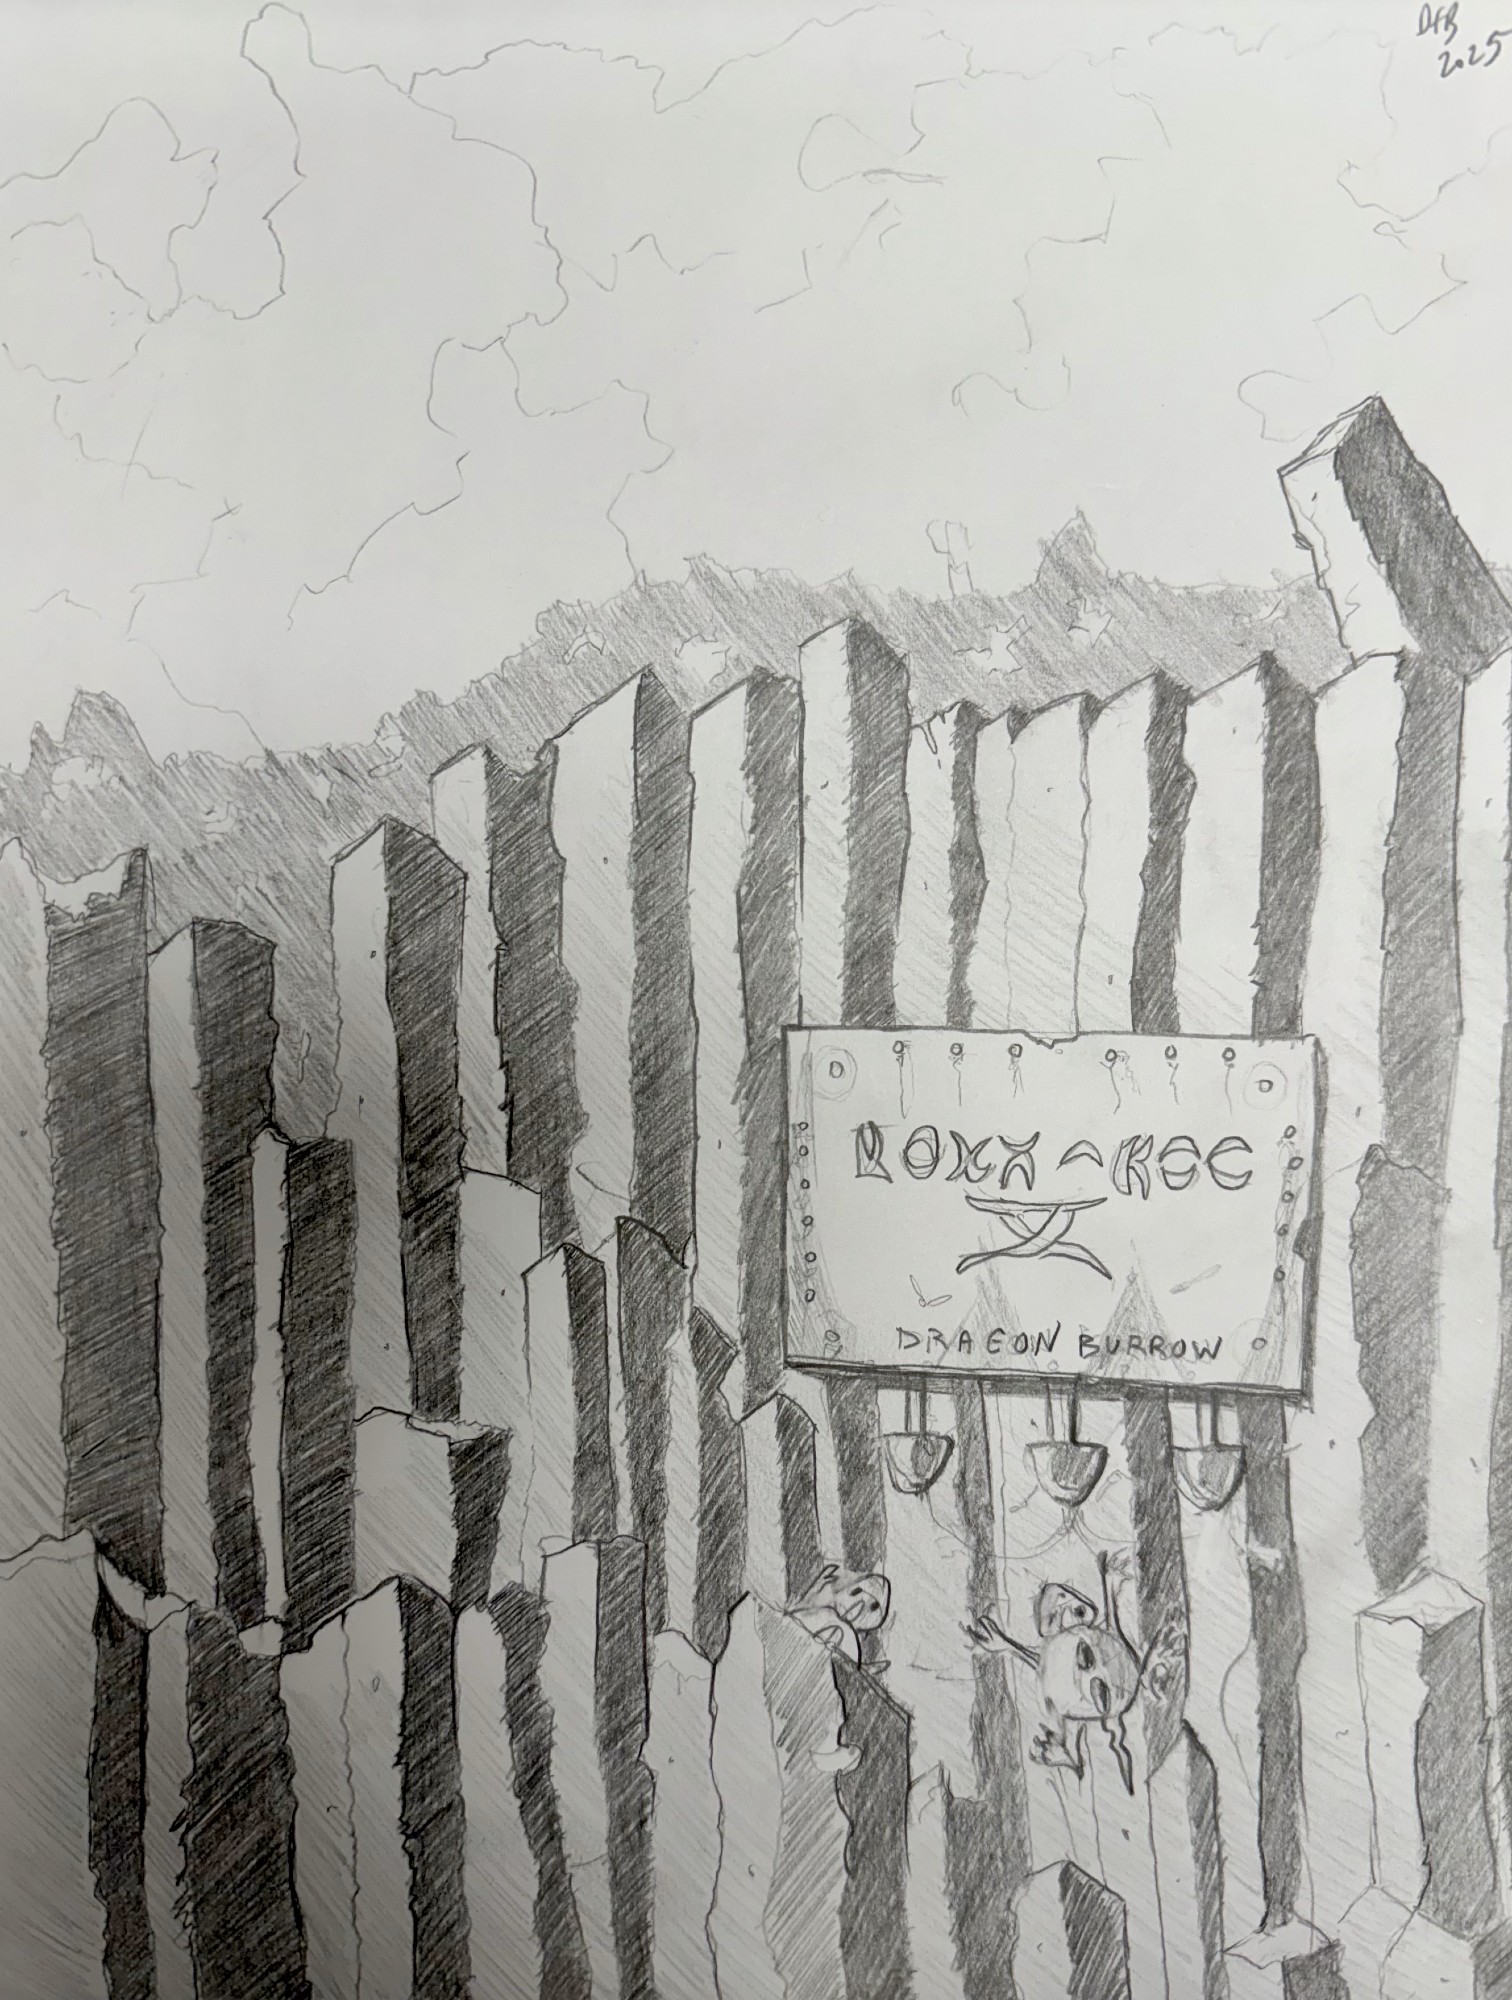 DFB
2025
ROXX-KEE
DRAGON BURROW